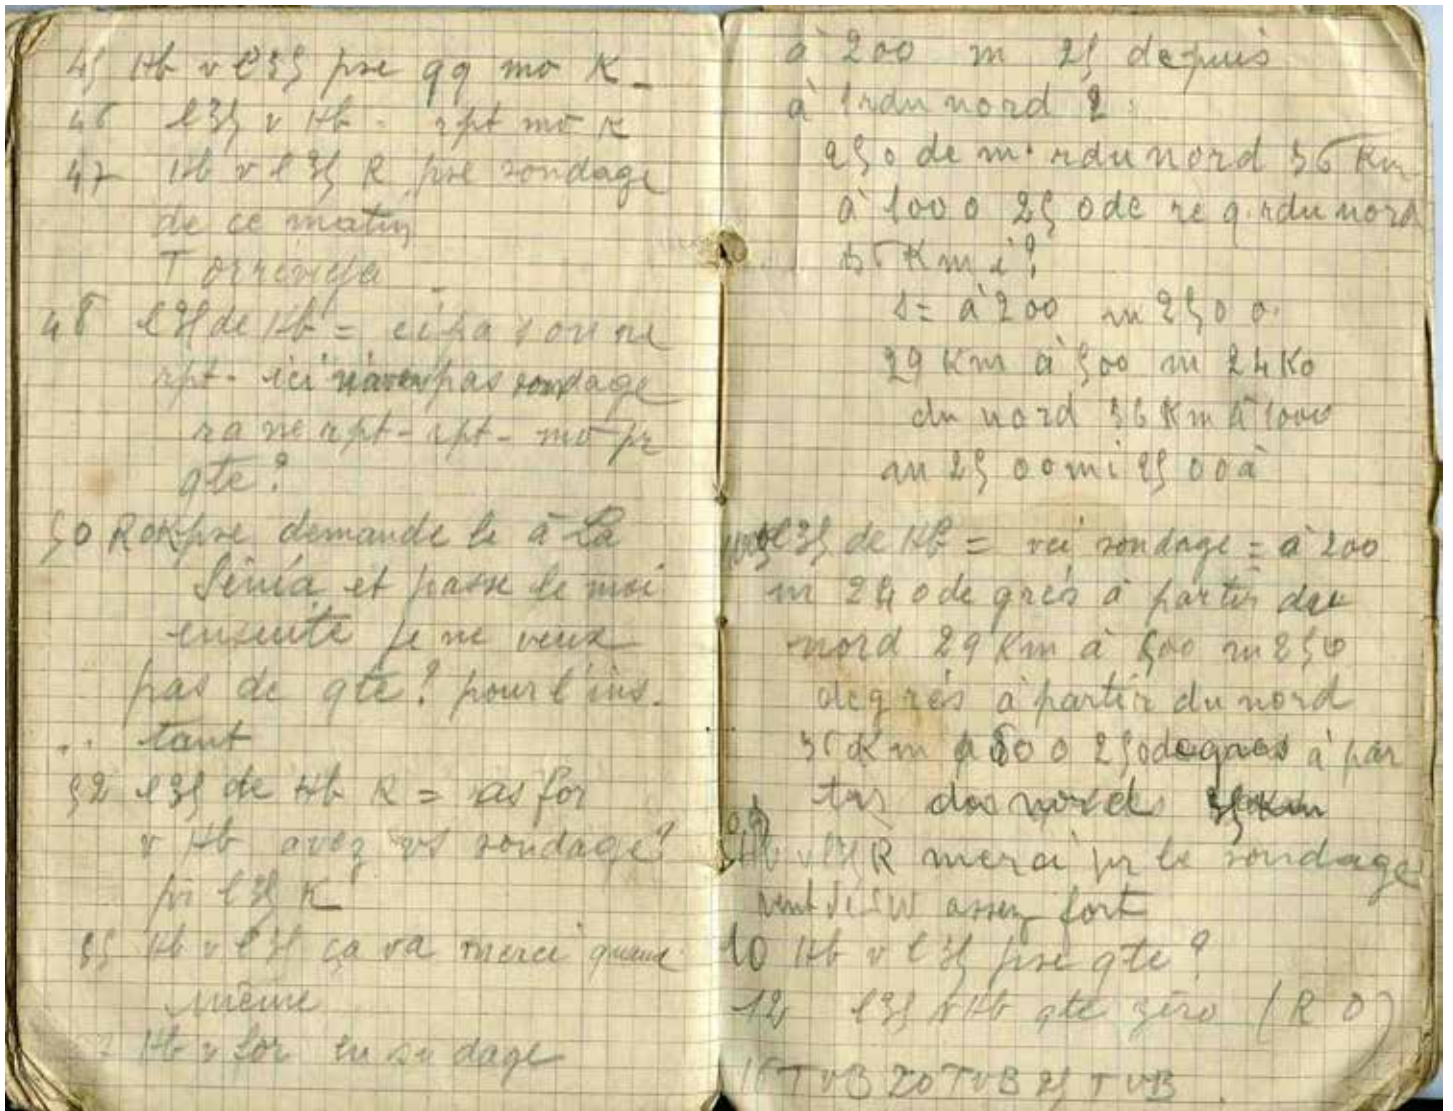 45 Hb v l35 pse qq mo K -
46 l35 v Hb - rpt mo K
47 Hb v l35 R pse sondage
de ce matin
Torrevieja
48 l35 de Hb = ici pa son ne
rpt - ici pas sondage
ra ne rpt - rpt - mo pr
qte ?
50 R OK pse demande le à La
Sénia et passe le moi
ensuite je ne veux
pas de qte ? pour l'ins.
tant
52 l35 de Hb R = as for
v Hb avez vs sondage ?
pr l35 K
55 Hb v l35 ça va merci quand
même
Hb v for en so dage
à 200 m 25 depuis
à 1rdu nord 2
250 de m. rdu nord 36 Km
à 1000 250 de re q. rdu nord
Km i ?
s = à 200 m 2500.
29 Km à 500 m 24K0
du nord 36 Km à 1000
an 25 00mi 2500 à
l35 de Hb = vci sondage = à 200
m 240 degrés à partir du
nord 29 Km à 500 m 250
degrés à partir du nord
36 Km 0 250 degrés à par
tir dos nords 35 Km
Hb v l35 R merci pr le sondage
vent de SW assez fort
10 Hb v l35 pse qte ?
12 l35 v Hb qte zéro (R O)
16 TVB 20 TVB 25 TVB